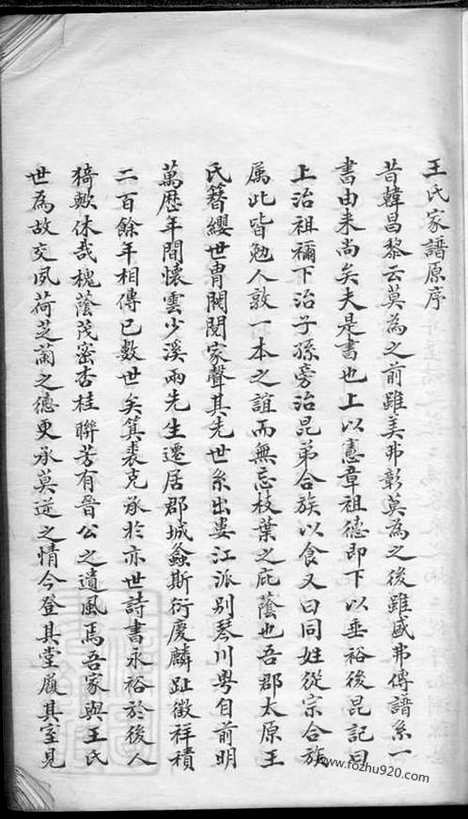 王氏家譜原序
昔韓昌黎云莫為之前雖美弗彰莫為之後雖盛弗傳譜系一
書由来尚矣夫是書也上以憲章祖德即下以垂裕後昆記曰
上治祖禰下治子孫旁治昆弟合族以食又曰同姓從宗合族
属此皆勉人敦一本之誼而無忘枝葉之庇蔭也吾郡太原王
氏簪纓世胄閥閱家聲其先世系出婁江派別琴川粤自前明
萬歷年間懷雲少溪兩先生遷居郡城螽斯衍慶麟趾徵祥積
二百餘年相傳已數世矣箕裘克承於亦世詩書永裕於後人
猗歟休哉槐蔭茂密杏桂聯芳有晉公之遺風焉吾家與王氏
世為故交夙荷芝蘭之德更承莫逆之情今登其堂履其室見
www.fozhu920.com